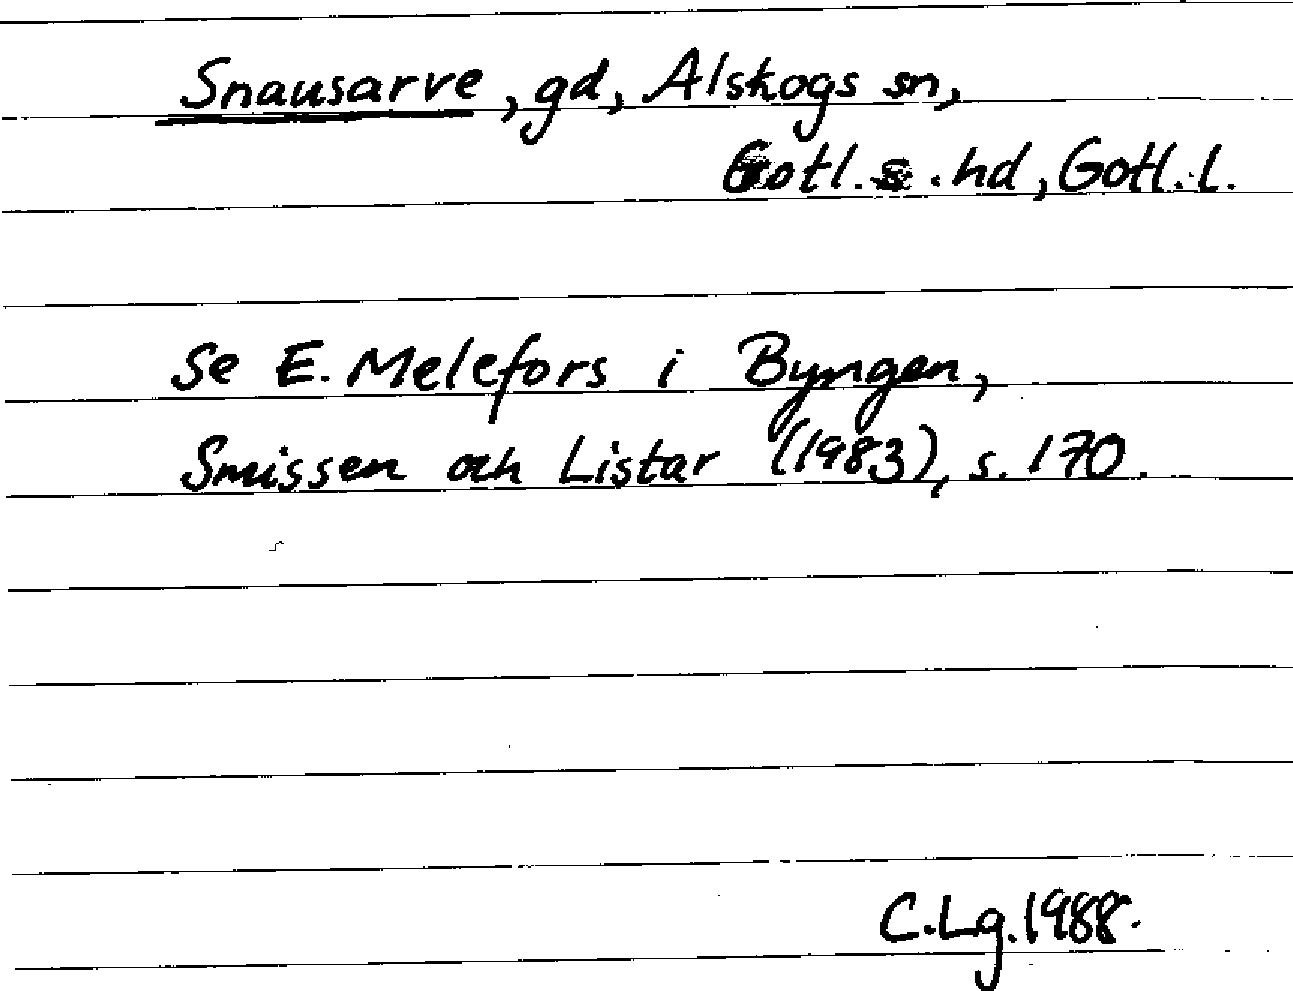 Snausarve, gd, Alskogs sn,
Gotl. s. hd, Gotl. l.
Se E. Melefors i Byngen,
Smissen och Listar (1983), s. 170.
C. Lg. 1988.